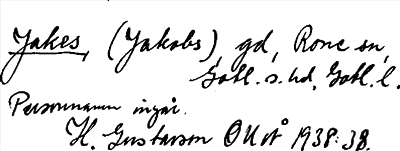 Jakes, (Jakobs), gd, Rone sn,
Gotl. s. hd, Gotl. l.
Personnamn ingår.
H. Gustavson OUÅ 1938:38.